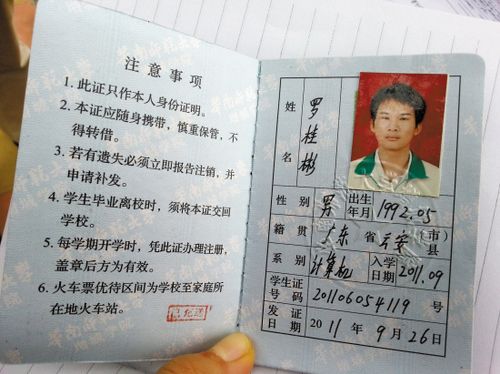 注意事项
1. 此证只作本人身份证明。
2. 本证应随身携带，慎重保管，不
得转借。
3. 若有遗失必须立即报告注销，并
申请补发。
4. 学生毕业离校时，须将本证交回
学校。
5. 每学期开学时，凭此证办理注册，
盖章后方为有效。
6. 火车票优待区间为学校至家庭所
在地火车站。
姓名 罗桂彬
性别 男 出生年月 1992.05
籍贯 广东 省 云安 市县
系别 计算机 入学日期 2011.09
学生证号码 201106054119 号
发证日期 2011 年 9 月 26 日